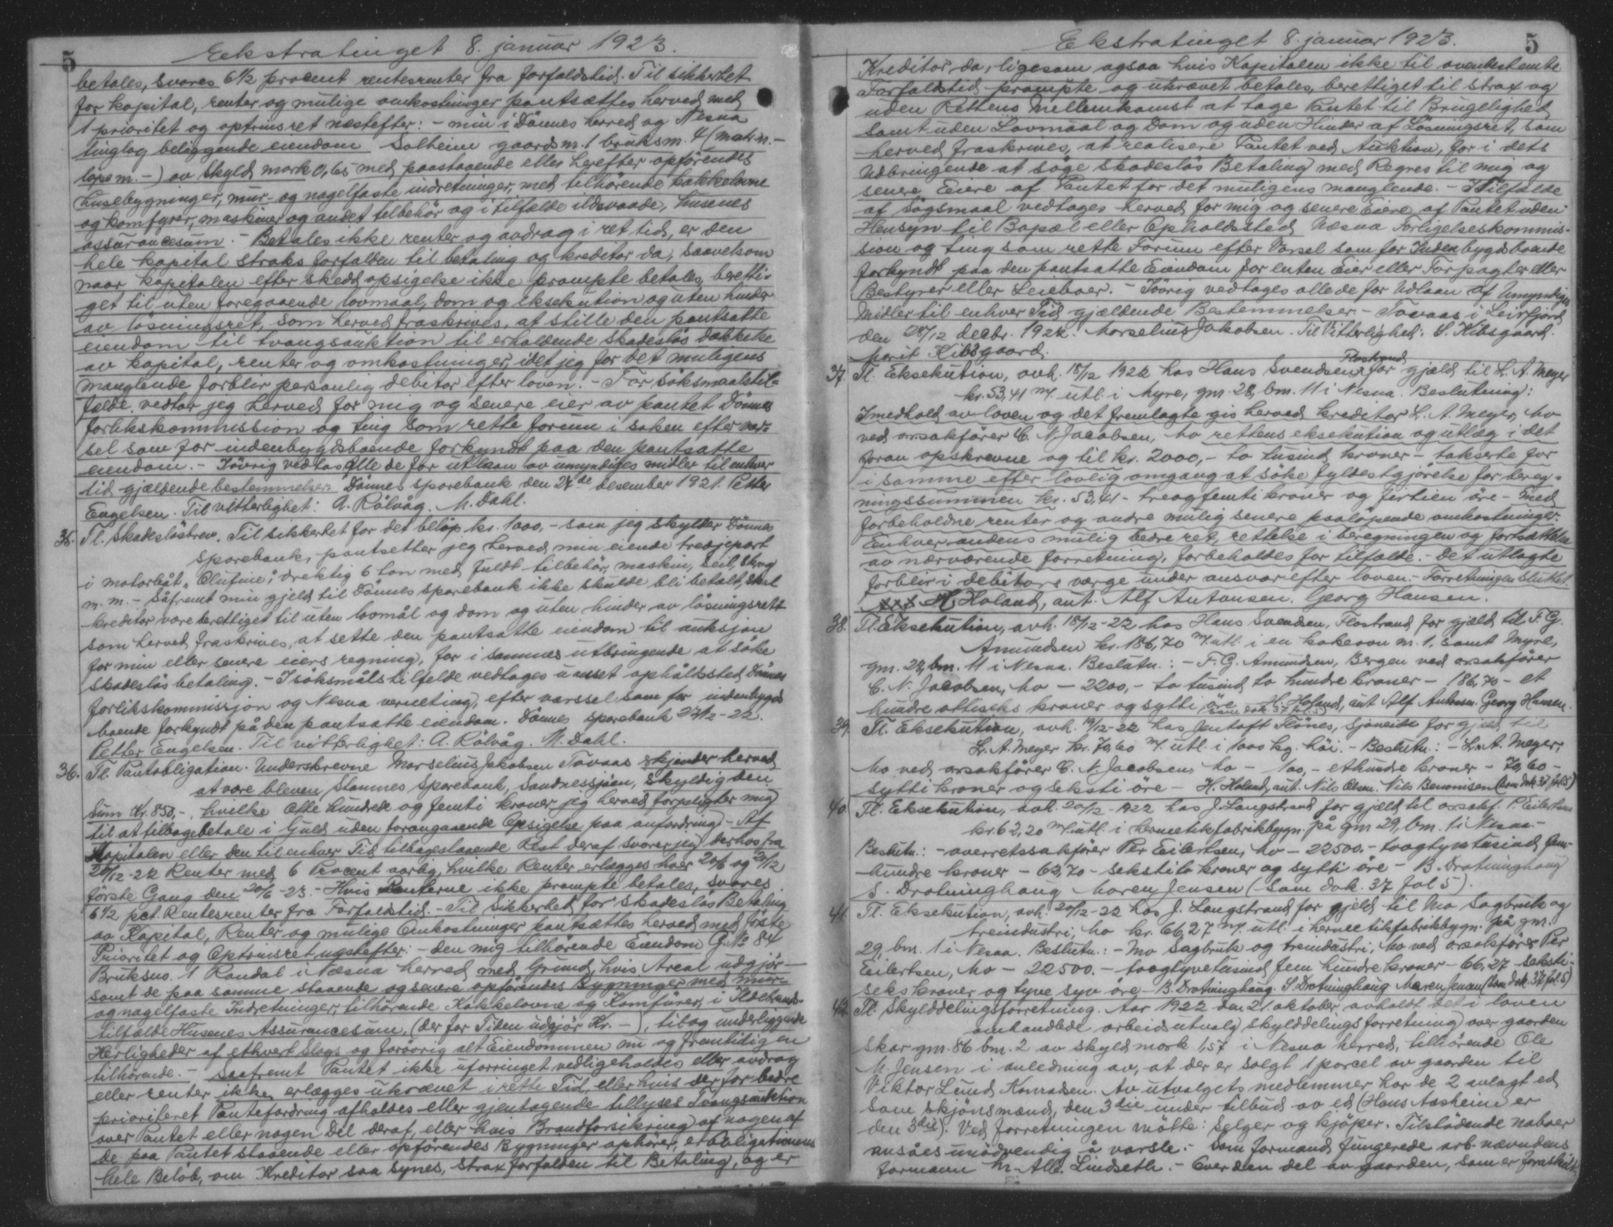 5
Ekstratinget 8. januar 1923.
betales, svares 6½ procent rentesrenter fra forfaldstid. Til sikkerhet
for kapital, renter og mulige omkostninger pantsættes herved med
1 prioritet og optrinsret næstefter: - min i Dönnes herred og Nesna
tinglag beliggende eiendom Solheim gaardsn. 1 bruksn. 4 (matr.n. -
löpen. -) av Skyld mark 0,65 med paastaaende eller herefter opförendes
husebygninger, mur- og nagelfaste indretninger, med tilhörende kakkelovne
og komfyrer, maskiner og andet tilbehör og i tilfælde ildsvaade, husenes
assurancesum. - Betales ikke renter og avdrag i ret tid, er den
hele kapital straks forfalden til betaling og kreditor da, saavelsom
naar kapitalen efter skedd opsigelse ikke prompte betales, beretti-
get til uten foregaaende lovmaal, dom og eksekution og uten hinder
av lösningsret, som herved fraskrives, at stille den pantsatte
eiendom til tvangsauktion til erholdende skadeslös dækkelse
av kapital, renter og omkostninger, idet jeg for det muligens
manglende forblir personlig debitor efter loven. - For söksmaalstil-
fælde vedtar jeg herved for mig og senere eier av pantet Dönnes
forlikskommission og ting som rette forum i saken efter var-
sel som for indenbygdsboende forkyndt paa den pantsatte
eiendom. - Iövrig vedtas alle de for utlaan av umyndiges midler til enhver
tid gjældende bestemmelser. Dönnes sparebank den 24de desember 1921. Petter
Engelsen. Til vitterlighet: A. Rölvåg. M. Dahl.
35. Tl. Skadeslösbrev. Til sikkerhet for det belöp kr. 1000,- som jeg skylder Dönnes
Sparebank, pantsetter jeg herved min eiende tredjepart
i motorbåt "Olufine", drektig 6 ton med fuldt tilbehör, maskin, seil,
m. m. - Såfremt min gjeld til Dönnes sparebank ikke skulde bli betalt, skal
kreditor være berettiget til uten lovmål og dom og uten hinder av lösningsrett
som herved fraskrives, at sette den pantsatte eiendom til auksjon
for min eller senere eiers regning, for i sammes utbringende at söke
skadeslös betaling. - I söksmålstilfelde vedtages uanset opholdssted Dönnes
forlikskommisjon og Nesna verneting efter varssel som for indenbygds
boende forkyndt på den pantsatte eiendom. Dönnes sparebank 27/12-22.
Petter Engelsen. Til vitterlighet: A. Rölvåg. M. Dahl.
36. Tl. Pantobligation. Underskrevne Marselius Jakobsen Tovaas erkjender herved
at være bleven Stamnes Sparebank, Sandnessjöen, Skyldig den
Sum Kr. 850,-, hvilke Otte hundrede og femti kroner jeg herved forpligter mig
til at tilbagebetale i Guld uden foregaaende Opsigelse paa anfordring. - Af
Kapitalen eller den til enhver Tid tilbagestaaende Rest deraf svarer jeg derhos fra
20/12-22 Renter med 6 Procent aarlig, hvilke Renter erlægges hver 20/6 og 20/12
förste Gang den 20/6-23. - Hvis Renterne ikke prompte betales, svares
6½ pct. Rentesrenter fra Forfaldstid. - Til Sikkerhet for Skadeslös Betaling
av Kapital, Renter og mulige Omkostninger pantsættes herved med förste
Prioritet og Optrinsret næstefter: - den mig tilhörende Eiendom G. No 84
Bruksno. 1 Randal i Næsna herred med Grund, hvis Areal udgjör -
samt de paa samme staaende og senere opförendes Bygninger med mur-
og nagelfaste Indretninger, tilhörende Kakkelovne og Komfurer, i Ildebrands-
tilfælde Husenes Assurancesum, (der for Tiden udgjör Kr. -), tillag underliggende
Herligheder af ethvert Slags og forövrig alt Eiendommen nu og fremtidig en
tilhörende. - Saafremt Pantet ikke uforringet vedligeholdes eller avdrag
eller renter ikke erlægges ukrævet i rette Tid, eller hvis der for bedre
prioriteret Pantefordring afholdes eller gjentagende tillyses Tvangsauktion
over Pantet eller nogen Del deraf, eller hvis Brandforsikring af nogen af
de paa Pantet staaende eller opförendes Bygninger ophører, er obligationens
hele Beløb, om Kreditor saa synes, strax forfalden til Betaling, og er
5
Ekstratinget 8. januar 1923.
Kreditor da, ligesom ogsaa hvis Kapitalen ikke til ovenbestemte
Forfaldstid prompte og ukrævet betales, berettiget til strax og
uden Rettens Mellemkomst at tage Pantet til Brugelighed
samt uden Lovmaal og Dom og uden Hinder af Lösningsret, som
herved fraskrives, at realisere Pantet ved Auktion, for i dets
Udbringende at söge skadeslös Betaling med Regres til mig og
senere Eiere af Pantet for det muligens manglende. - I Tilfælde
af Sögsmaal vedtages herved for mig og senere Eiere af Pantet uden
Hensyn til Bopæl eller Opholdssted Næsna Forligelseskommis-
sion og Ting som rette Forum efter Varsel som for Indenbygdsboende
forkyndt paa den pantsatte Eiendom for enten Eier eller Forpagter eller
Bestyrer eller Leieboer. - Iövrig vedtages alle de for Udlaan af Umyndiges
Midler til enhver Tid gjældende Bestemmelser. - Tovaas i Leirfjord
den 20/12 decbr. 1922. Marselius Jakobsen. Til Vitterlighed: S. Kibsgaard.
Kibsgaard.
37. Tl. Eksekution, avh. 18/12 1922 hos Hans Svendsen Flostrand for gjæld til L. A. Meyer
kr. 53,41 m/ utl. i Myre, gm. 28, bm. 11 i Nesna. Beslutning:
I medhold av loven og det fremlagte gis herved kreditor L. A. Meyer, Mo
ved orsakförer C. N. Jacobsen, Mo rettens eksekution og utlæg i det
foran opskrevne og til kr. 2000,- to tusind kroner - takserte for
i samme efter lovlig omgang at söke fyldestgjörelse for bereg-
ningssummen kr. 53,41 - treogfemti kroner og förtien öre - med
forbeholdne renter og andre mulig senere paalöpende omkostninger.
Enhver andens mulig bedre ret, rettelse i beregningen og fortsættelse
av nærværende forretning, forbeholdes for tilfælde. Det utlagte
forblir i debitors værge under ansvar efter loven. - Forretningen sluttet
H. Holand, aut. Alf Antonsen. Georg Hansen.
38. Tl. Eksekution, avh. 18/12-22 hos Hans Svendsen, Flostrand for gjæld til F. G.
Amundsen kr. 186,70 m/ utl. i en kakeovn m. 1, samt Myre,
gm. 28, bm. 11 i Nesna. Beslutn.: - F. G. Amundsen, Bergen ved orsakförer
C. N. Jacobsen, Mo - 2200,- to tusind to hundre kroner - 186,70 - et
hundre ottiseks kroner og sytti öre H. Holand, aut. Alf Antonsen. Georg Hansen.
39. Tl. Eksekution, avh. 19/12-22 hos Jentoft Hånes, Sjöneidet for gjæld til
L. A. Meyer kr. 70,60 m/ utl. i 1000 kg. höi. - Beslutn.: - L. A. Meyer,
Mo ved orsakförer C. N. Jacobsen, Mo - 100,- ethundre kroner - 70,60 -
sytti kroner og seksti öre - H. Holand, aut. Nils Olsen. Nils Benonisen (Som dok. 37 fol 5)
40. Tl. Eksekution, avh. 20/12-1922 hos J. Langstrand for gjæld til orsakf. P. Eilertsen
kr. 62,20 m/ utl. i hermetikfabrikbygn. på gm 29, bm. 1 i Nesna. -
Beslutn.: - overretssakförer Per Eilertsen, Mo - 22500.- toogtyvetusind fem-
hundre kroner - 62,70 - sekstito kroner og sytti öre - B. Drotninghaug
S. Drotninghaug Maren Jensen (Som dok. 37 fol 5).
41. Tl. Eksekution, avh. 20/12-22 hos J. Langstrand for gjæld til Mo Sagbruk og
træindustri, Mo kr. 66,27 m/ utl. i hermetikfabrikbygn. på gm.
29, bm. 1 i Nesna. Beslutn.: - Mo Sagbruk og træindustri, Mo ved orsakförer Per
Eilertsen, Mo - 22500.- toogtyvetusind fem hundre kroner - 66,27 - seksti-
seks kroner og tyve syv öre - B. Drotninghaug. S. Drotninghaug Maren Jensen (Som dok. 37 fol 5)
42. Tl. Skylddelingsforretning. Aar 1922 den 21 oktober avholdt det i loven
omhandlede arbeidsutvalg skylddelingsforretning over gaarden
Skar gm. 86 bm. 2 av skyld mark 1,57 i Nesna herred, tilhörende Ole
M. Jensen i anledning av, at der er solgt 1 parcel av gaarden til
Viktor Leund Konradsen. Av utvalgets medlemmer har de 2 avlagt ed
som skjönsmænd, den 3die under tilbud av ed (Hans Aasheim er
den 3die). Ved forretningen mötte: Selger og kjöper. Tilstödende naboer
ansåes unödvendig å varsle. - Som formand fungerede arb. nævndens
formann M. Alb. Lindseth. - Over den del av gaarden, som er fraskilt,